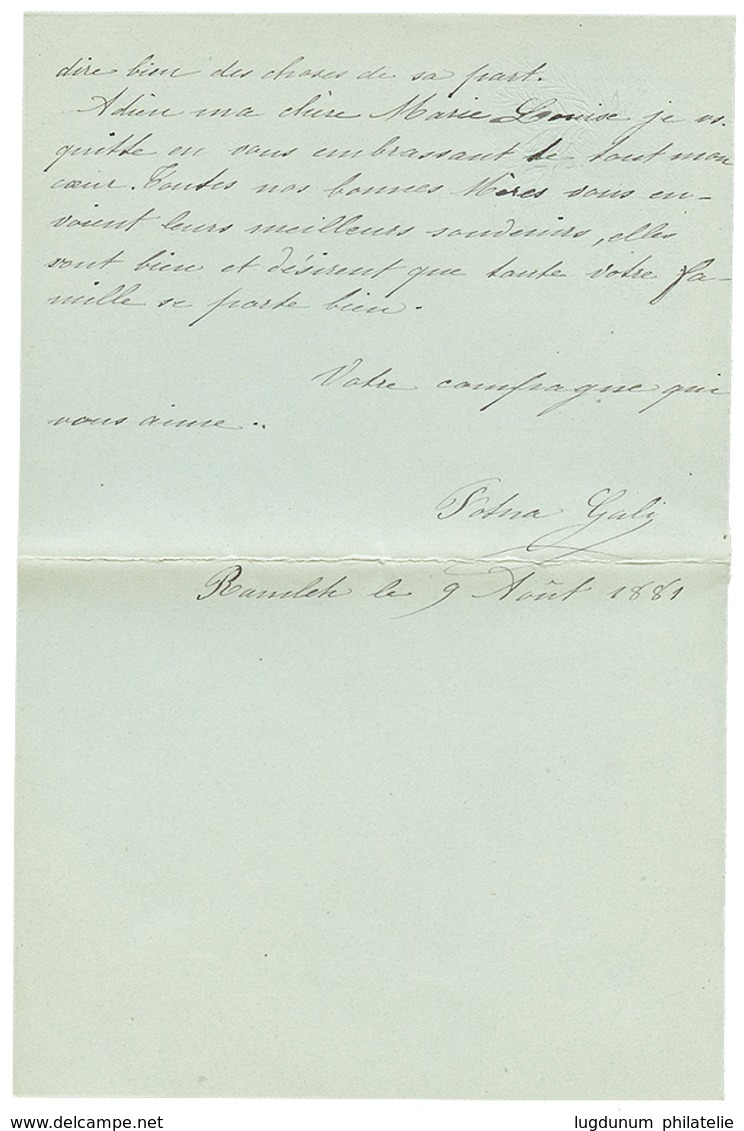 dire bien des choses de sa part.
Adieu ma chère Marie Louise je vs.
quitte en vous embrassant de tout mon
cœur. Toutes nos bonnes Mères vous en-
voient leurs meilleurs souvenirs, elles
sont bien et désirent que toute votre fa-
mille se porte bien.
Votre compagne qui
vous aime..
Fotna Galy
Ramleh le 9 Août 1881
lugdunum philatelie